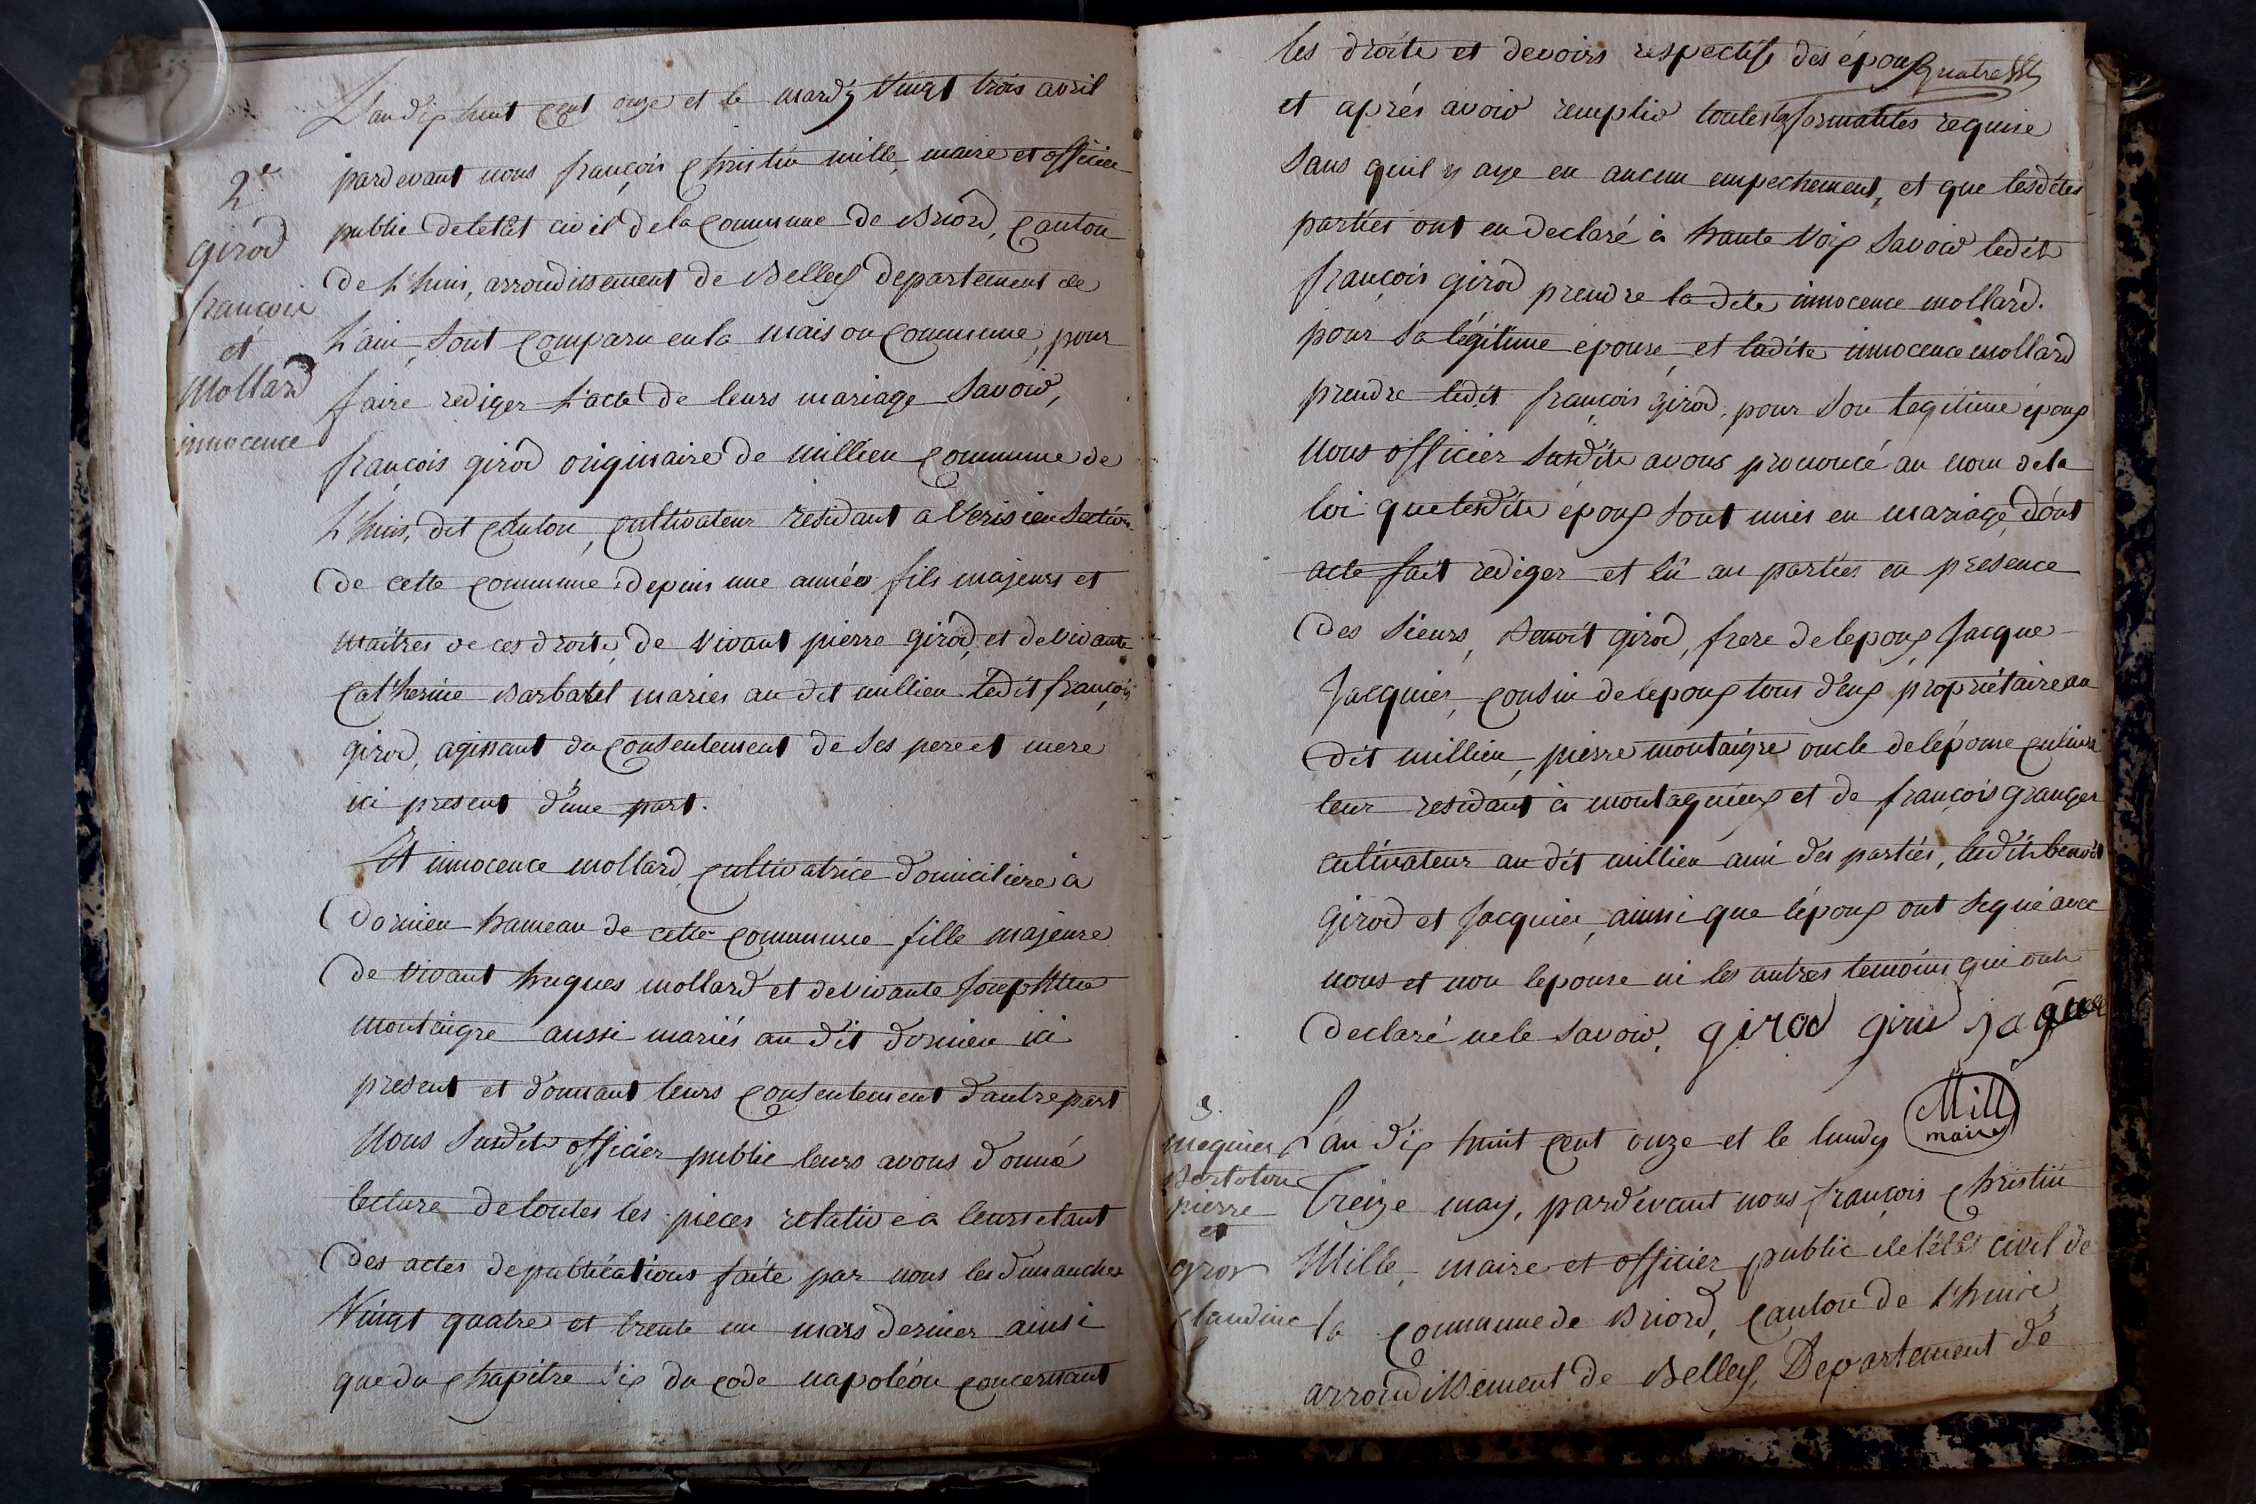 L'an dix huit cent onze et le mardy vingt trois avril
pardevant nous françois christin mille, maire et officier
public deletat civil dela commune de Briord, canton
de L'huis, arrondissement de Belley departement de
L'ain, sont comparu en la maison commune, pour
faire rediger l'acte de leurs mariage savoir,
françois girod originaire de millieu commune de
L'huis, dit canton, cultivateur residant a Verisieu section
de cette commune depuis une année fils majeurs et
maitres de ces droits, de vivant pierre girod, et de vivante
Catherine Barbatel mariés au dit millieu ledit françois
girod, agissant du consentement de ses pere et mere
ici present d'une part.
Et innocence mollard cultivatrice domiciliere à
dornieu hameau de cette commune fille majeure
de vivant hugues mollard et de vivante Josephtte
montaigre aussi mariés au dit dornieu ici
present et donnant leurs consentement d'autre part
Nous susdit officier public leurs avons donné
lecture de toutes les pieces relative a leurs etant
des actes de publications faite par nous les dimanches
Vingt quatre et trente un mars dernier ainsi
que du chapitre six du code napoléon concernant
2e
girod
françois
et
Mollard
innocence
les droits et devoirs respectifs des époux
et aprés avoir remplir toutes les formalités requise
sans quil y aye eu aucun empechement, et que lesdites
parties ont eu declaré à haute voix savoir ledit
françois girod prendre la dite innocence mollard.
pour sa légitime épouse, et ladite innocence mollard
prendre ledit françois girod, pour son legitime époux
Nous officier susdite avons prononcé au nom dela
loi que lesdits époux sont unis en mariage, dont
acte fait rediger et lû au parties en presence
des sieurs, Benoit girod, frere de lepoux, Jacque
Jacquier, cousin de lepoux tous d'eux propriétaire au
dit millieu, pierre montaigre oncle de lépouse cultiva
teur residant à montagnieux et de françois granger
cultivateur au dit millieu ami des parties, ledit benoit
girod et Jacquier, ainsi que lépoux ont signé avec
nous et non lepouse ni les autres temoins qui ont
declaré ne le savoir. girod girod jaquier
Mille
maire
L'an dix huit cent onze et le lundy
Treize may, pardevant nous françois christin
Mille, maire et officier public de l'état civil de
la commune de Briord, canton de l'huis
arrondissement de Belley, Departement de
3.
Bertolon
pierre
et
claudine